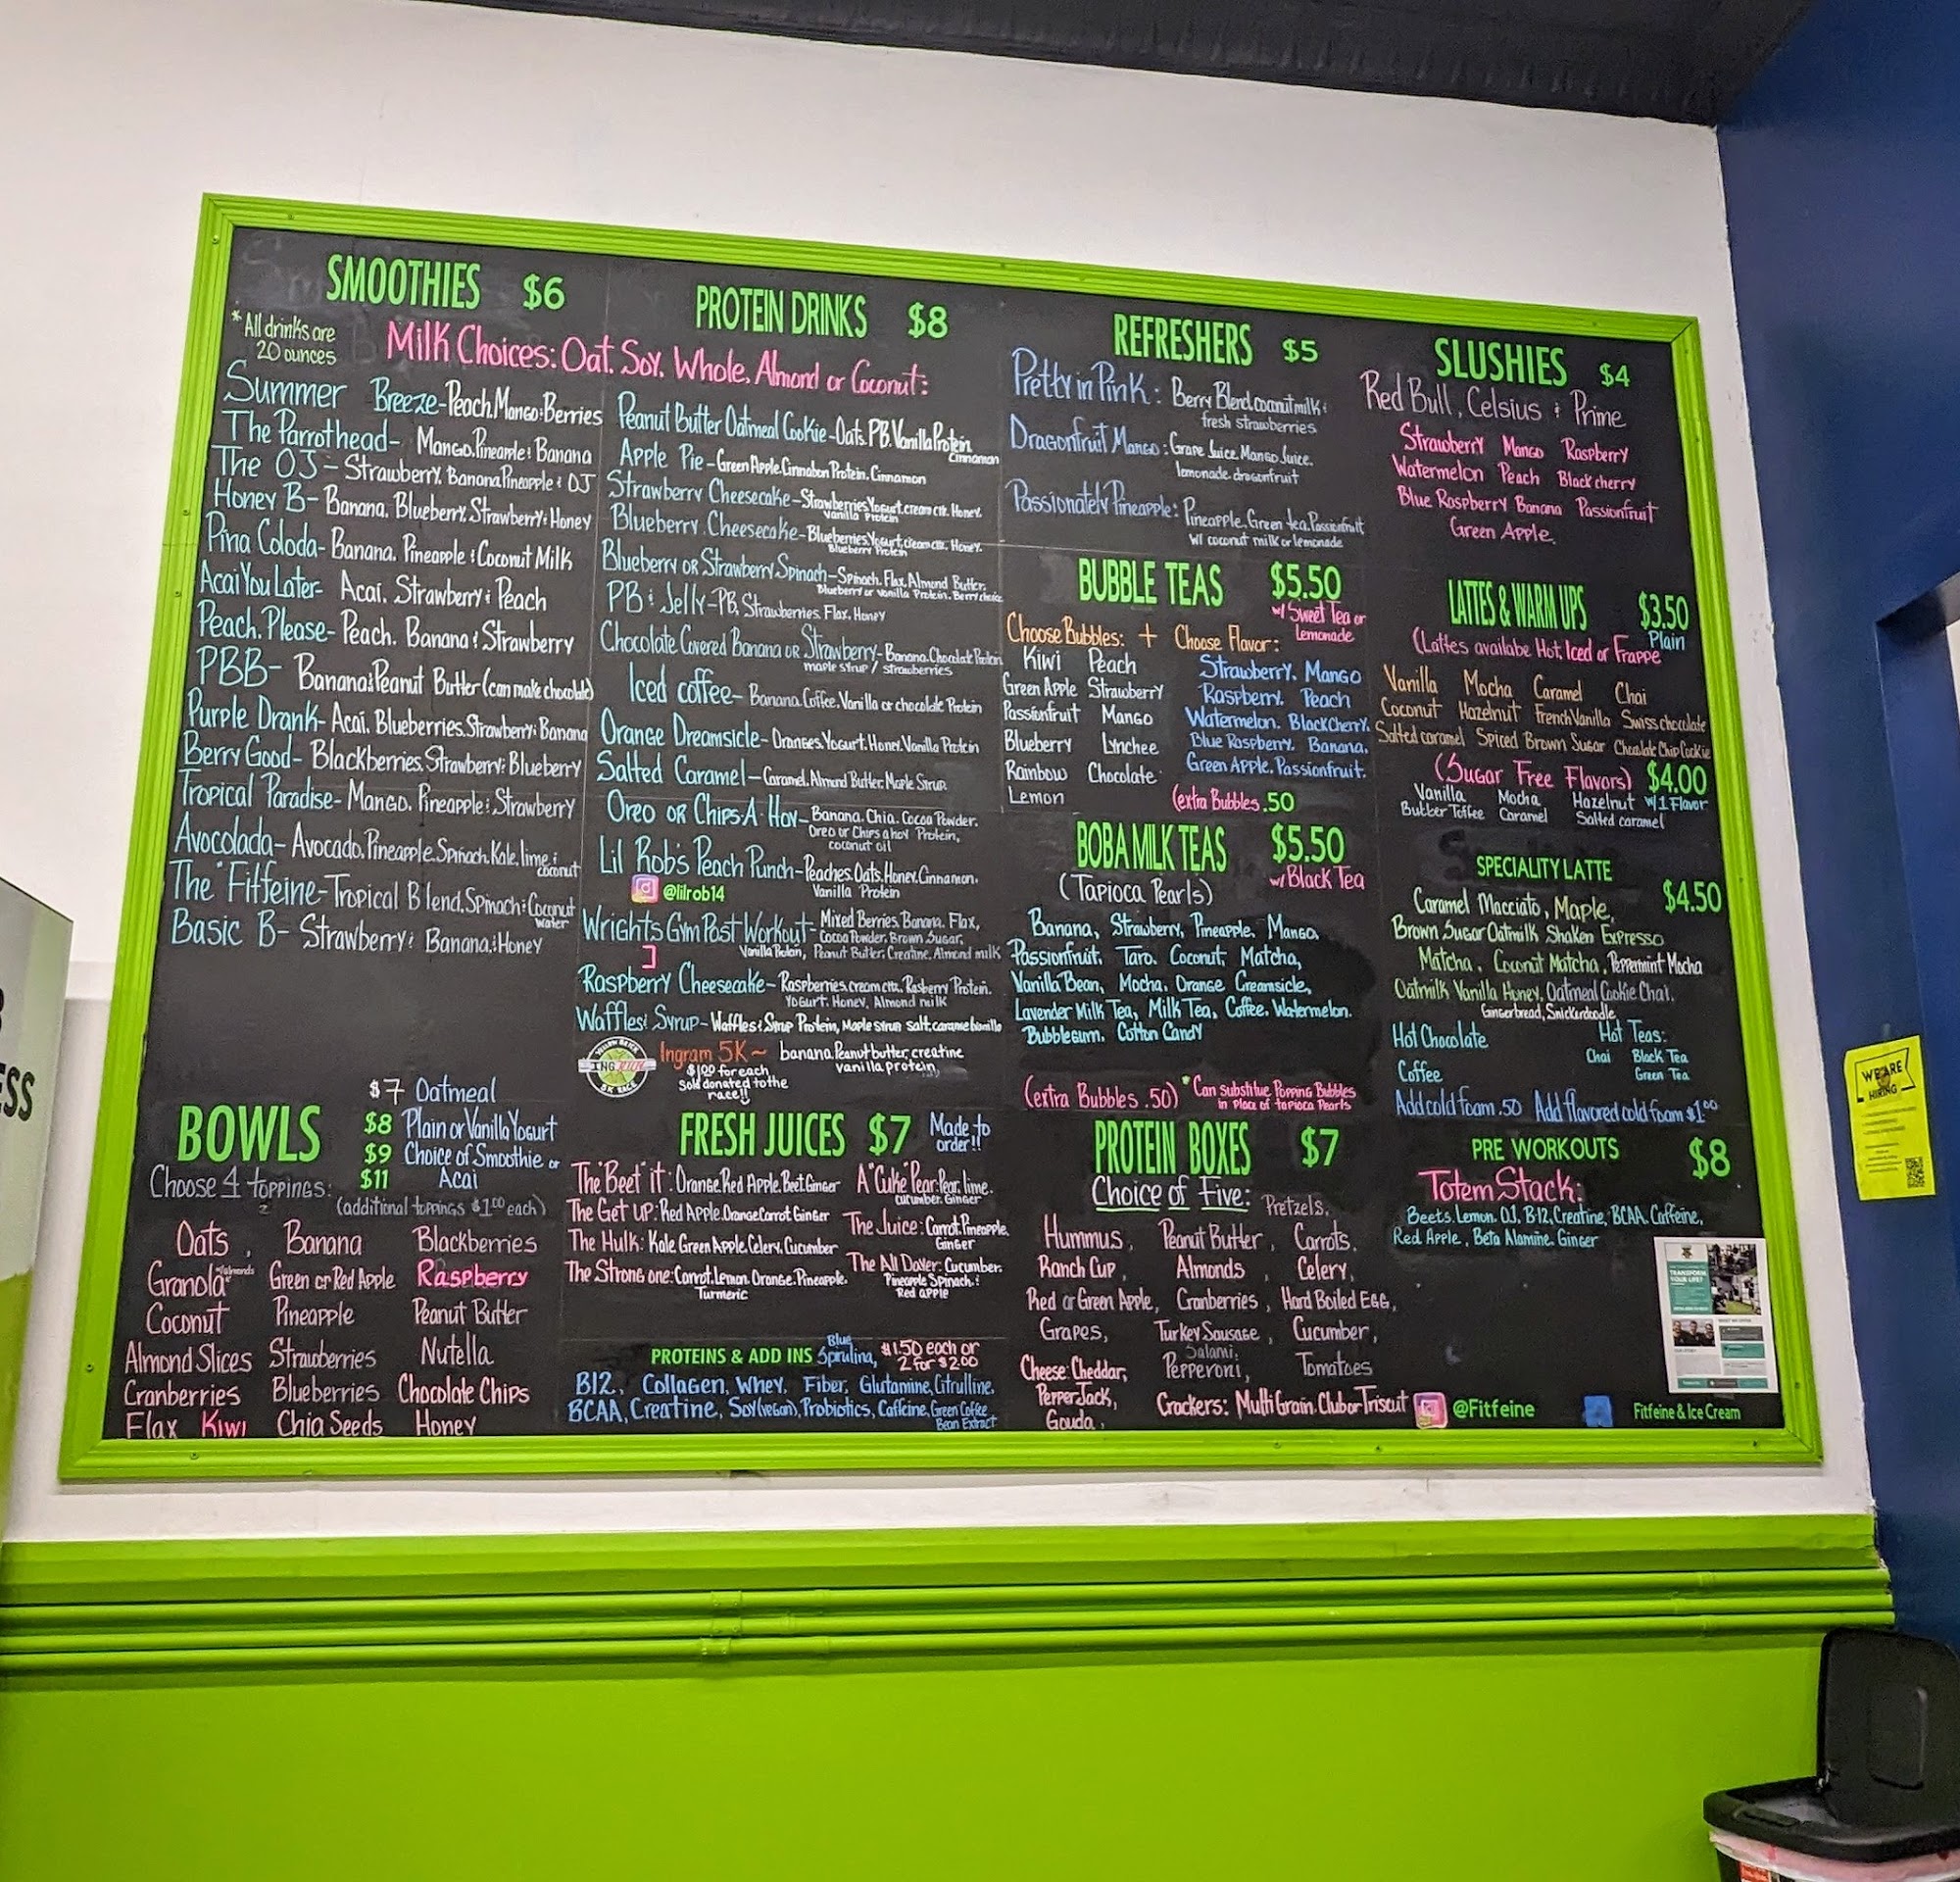 SMOOTHIES $6
*All drinks are
20 ounces
PROTEIN DRINKS $8
Milk Choices: Oat, Soy, Whole, Almond or Coconut:
Summer Breeze-Peach,Mango:Berries
The Parrothead- Mango,Pineapple: Banana
The OJ - Strawberry, Banana,Pineapple: OJ
Honey B- Banana, Blueberry, Strawberry:Honey
Pina Coloda- Banana, Pineapple :Coconut Milk
Acai You Later- Acai, Strawberry: Peach
Peach, Please- Peach, Banana : Strawberry
PBB- Banana:Peanut Butter (can make chocolate)
Purple Drank- Acai, Blueberries,Strawberry: Banana
Berry Good- Blackberries,Strawberry: Blueberry
Tropical Paradise- Mango, Pineapple: Strawberry
Avocolada- Avocado,Pineapple,Spinach,Kale,lime:
coconut
The "Fitfeine-Tropical Blend,Spinach:Coconut
water
Basic B- Strawberry: Banana:Honey
Peanut Butter Oatmeal Cookie-Oats,PB,Vanilla Protein,
Cinnamon
Apple Pie-Green Apple,Cinnabon Protein, Cinnamon
Strawberry Cheesecake-Strawberries,Yogurt,cream chz, Honey,
Vanilla Protein
Blueberry Cheesecake-Blueberries,Yogurt,cream chz, Honey,
Blueberry Protein
Blueberry OR Strawberry Spinach-Spinach, Flax, Almond Butter,
Blueberry or Vanilla Protein, Berry choice
PB : Jelly-PB, Strawberries, Flax, Honey
Chocolate Covered Banana OR Strawberry-Banana,Chocolate Protein
maple syrup / strawberries
Iced coffee- Banana,Coffee,Vanilla or chocolate Protein
Orange Dreamsicle-Oranges,Yogurt,Honey,Vanilla Protein
Salted Caramel-Caramel,Almond Butter,Maple Syrup
Oreo OR Chips-A-Hoy-Banana, Chia, Cocoa Powder,
Oreo or Chips a hoy Protein,
coconut oil
Lil Rob's Peach Punch-Peaches,Oats,Honey,Cinnamon,
@lilrob14 Vanilla Protein
Wrights Gym Post Workout-Mixed Berries, Banana, Flax,
Cocoa Powder, Brown Sugar,
Vanilla Protein, Peanut Butter, Creatine, Almond milk
Raspberry Cheesecake-Raspberries,cream chz, Rasberry Protein,
Yogurt, Honey, Almond milk
Waffles: Syrup-Waffles:Syrup Protein, Maple syrup, salt,caramel,vanilla
Ingram 5K~ banana,Peanut butter, creatine
vanilla protein,
$1.00 for each
sold donated to the
race!!
REFRESHERS $5
Pretty in Pink: Berry Blend,coconut milk :
fresh strawberries
Dragonfruit Mango: Grape Juice,Mango Juice,
lemonade, dragonfruit
Passionately Pineapple: Pineapple,Green tea,Passionfruit,
w/ coconut milk or lemonade
SLUSHIES $4
Red Bull, Celsius : Prime
Strawberry Mango Raspberry
Watermelon Peach Black cherry
Blue Raspberry Banana Passionfruit
Green Apple
BUBBLE TEAS $5.50
w/ Sweet Tea or
Lemonade
Choose Bubbles: + Choose Flavor:
Kiwi Peach
Green Apple Strawberry
Passionfruit Mango
Blueberry Lynchee
Rainbow Chocolate
Lemon
Strawberry, Mango
Raspberry, Peach
Watermelon, Black Cherry,
Blue Raspberry, Banana,
Green Apple, Passionfruit.
(extra Bubbles .50
BOBA MILK TEAS $5.50
(Tapioca Pearls) w/ Black Tea
Banana, Strawberry, Pineapple, Mango,
Passionfruit, Taro, Coconut, Matcha,
Vanilla Bean, Mocha, Orange Creamsicle,
Lavender Milk Tea, Milk Tea, Coffee, Watermelon,
Bubblegum, Cotton Candy
(extra Bubbles .50) *Can substitue Popping Bubbles
in Place of tapioca Pearls
LATTES & WARM UPS $3.50
Plain
(Lattes availabe Hot, Iced or Frappe
Vanilla Mocha Caramel Chai
Coconut Hazelnut French Vanilla Swiss chocolate
Salted caramel Spiced Brown Sugar Chocolate Chip Cookie
(Sugar Free Flavors) $4.00
w/ 1 Flavor
Vanilla Mocha Hazelnut
Butter Toffee Caramel Salted caramel
SPECIALITY LATTE $4.50
Caramel Macciato, Maple,
Brown Sugar Oatmilk Shaken Expresso
Matcha, Coconut Matcha, Peppermint Mocha
Oatmilk Vanilla Honey, Oatmeal Cookie Chai,
Gingerbread, Snickerdoodle
Hot Chocolate Hot Teas:
Coffee Chai Black Tea
Green Tea
Add cold foam .50 Add flavored cold foam $1.00
BOWLS
$7 Oatmeal
$8 Plain or Vanilla Yogurt
$9 Choice of Smoothie or
$11 Acai
Choose 4 toppings:
(additional toppings $1.00 each)
Oats, Banana Blackberries
Granola *almonds Green or Red Apple Raspberry
Coconut Pineapple Peanut Butter
Almond Slices Strawberries Nutella
Cranberries Blueberries Chocolate Chips
Flax Kiwi Chia Seeds Honey
FRESH JUICES $7 Made to
order!!
The "Beet" it: Orange,Red Apple,Beet,Ginger
The Get up: Red Apple,Orange,Carrot,Ginger
The Hulk: Kale,Green Apple,Celery,Cucumber
The Strong one: Carrot,Lemon,Orange,Pineapple,
Turmeric
A "Cuke" Pear: Pear, lime,
cucumber, Ginger
The Juice: Carrot,Pineapple,
Ginger
The All Dayer: Cucumber,
Pineapple,Spinach,:
Red apple
PROTEINS & ADD INS Blue Spirulina, $1.50 each or
2 for $2.00
B12, Collagen, Whey, Fiber, Glutamine, Citrulline,
BCAA, Creatine, Soy(vegan), Probiotics, Caffeine, Green Coffee
Bean Extract
PROTEIN BOXES $7
Choice of Five: Pretzels,
Hummus, Peanut Butter, Carrots,
Ranch Cup, Almonds, Celery,
Red or Green Apple, Cranberries, Hard Boiled Egg,
Grapes, Turkey Sausage, Cucumber,
Salami,
Cheese: Cheddar, Pepperoni, Tomatoes
Pepper Jack,
Gouda,
Crackers: Multi Grain, Club or Triscut
PRE WORKOUTS $8
Totem Stack:
Beets, Lemon, OJ, B-12, Creatine, BCAA, Caffeine,
Red Apple, Beta Alamine, Ginger
@Fitfeine
Fitfeine & Ice Cream
WE ARE
HIRING
TRANSFORM
YOUR LIFE!
ESS